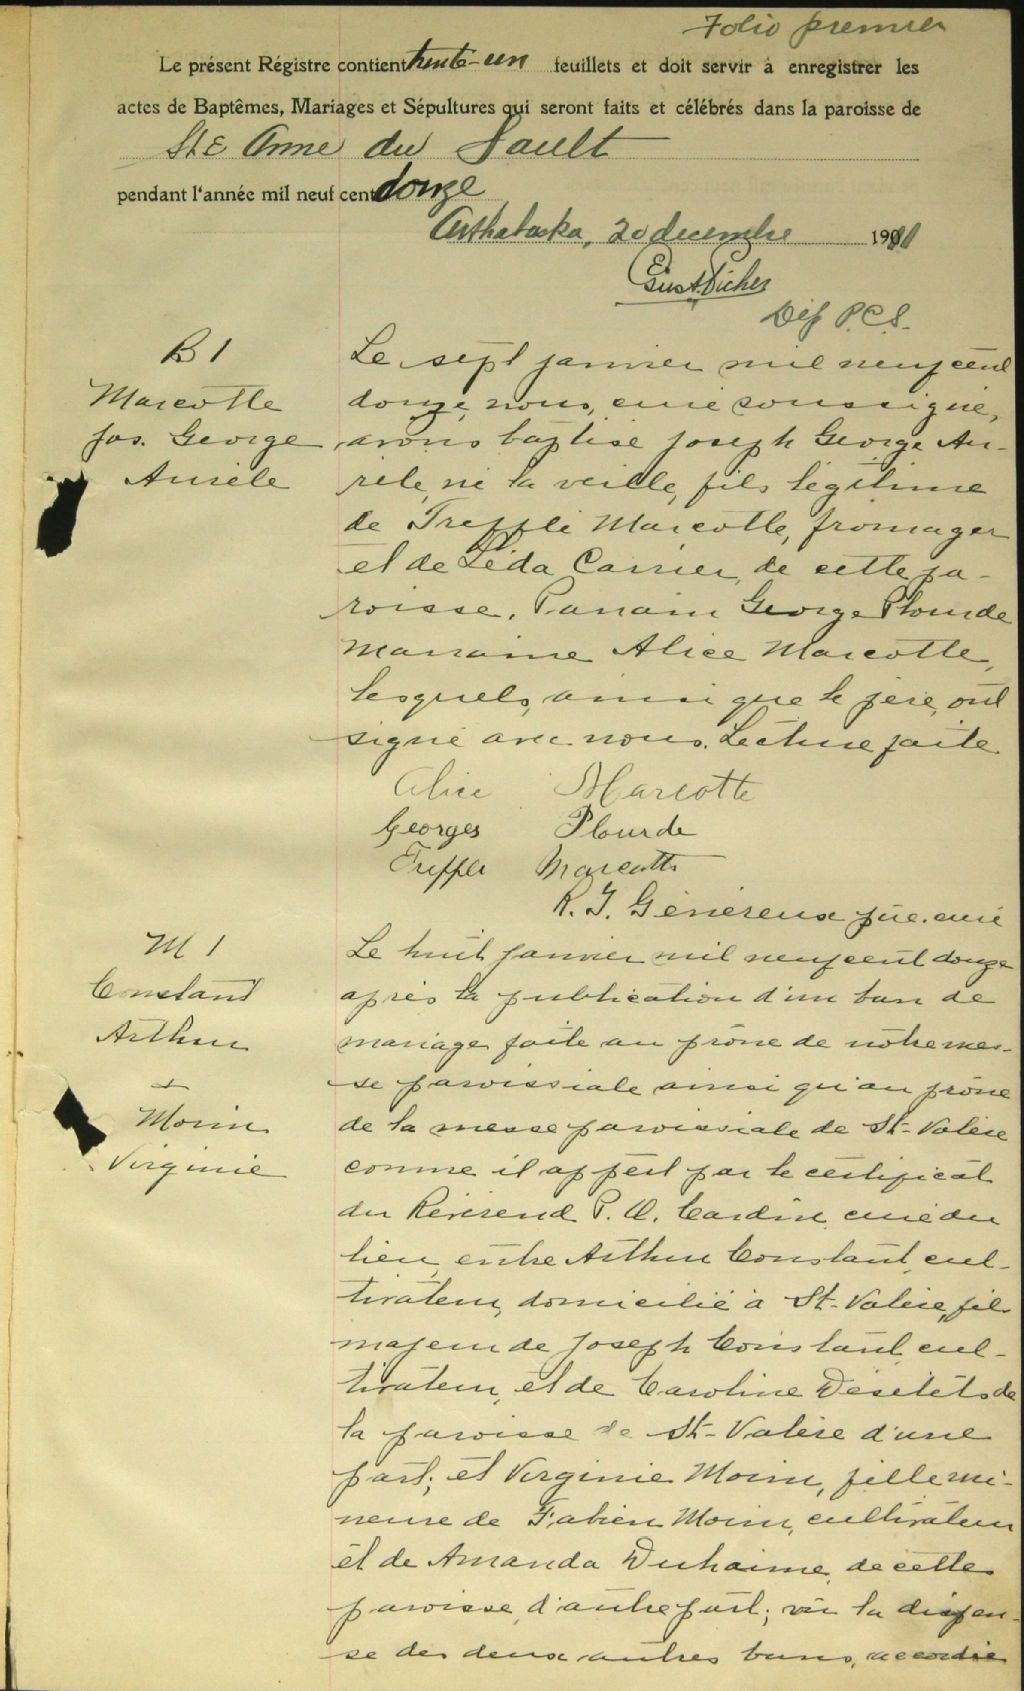 Folio premier
Le présent Régistre contient trente-un feuillets et doit servir à enregistrer les
actes de Baptêmes, Mariages et Sépultures qui seront faits et célébrés dans la paroisse de
Ste Anne du Sault
pendant l'année mil neuf cent douze
Arthabaska, 20 decembre 1911
Picher
Dép P.C.S.
B 1
Marcotte
Jos. George
Aurèle
Le sept janvier mil neuf cent
douze, nous, curé soussigné,
avons baptisé Joseph George Au-
rèle, né la veille, fils légitime
de Trefflé Marcotte, fromager
et de Léda Carrier, de cette pa-
roisse. Parrain George Plourde
marraine Alice Marcotte,
lesquels, ainsi que le père, ont
signé avec nous. Lecture faite.
Alice Marcotte
Georges Plourde
Treffle Marcotte
R. J. Généreux ptre. curé
M 1
Constant
Arthur
+
Morin
Virginie
Le huit janvier mil neuf cent douze
après la publication d'un ban de
mariage faite au prône de notre mes-
se paroissiale ainsi qu'au prône
de la messe paroissiale de St-Valère
comme il appert par le certificat
du Révérend P. O. Cardin, curé du
lieu, entre Arthur Constant, cul-
tivateur, domicilié à St-Valère, fils
majeur de Joseph Constant, cul-
tivateur, et de Caroline Désilêts de
la paroisse de St-Valère d'une
part; et Virginie Morin, fille mi-
neure de Fabien Morin, cultivateur
et de Amanda Duhaime, de cette
paroisse, d'autre part; vu la dispen-
se des deux autres bans, accordée